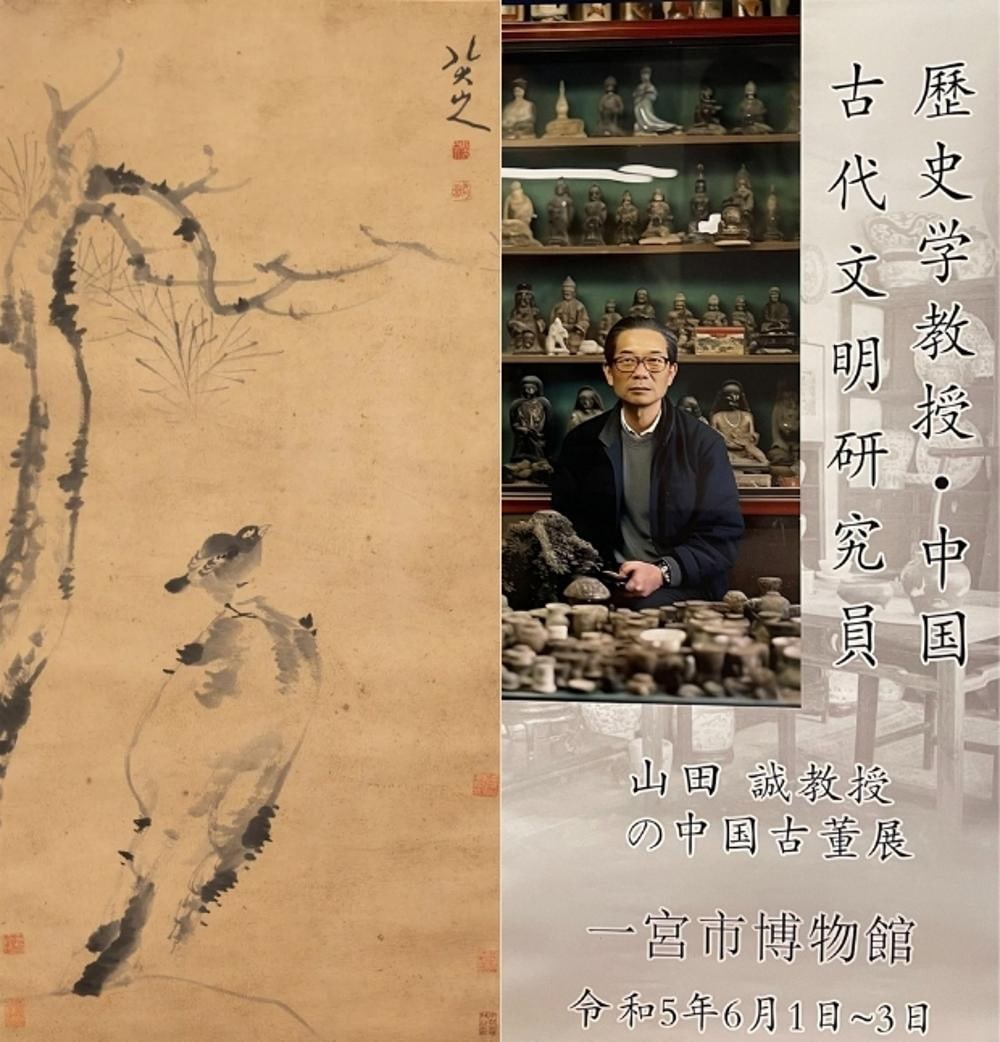 八大山人
歷史学教授・中国
古代文明研究員
山田 誠教授
の中国古董展
一宮市博物館
令和5年6月1日~3日